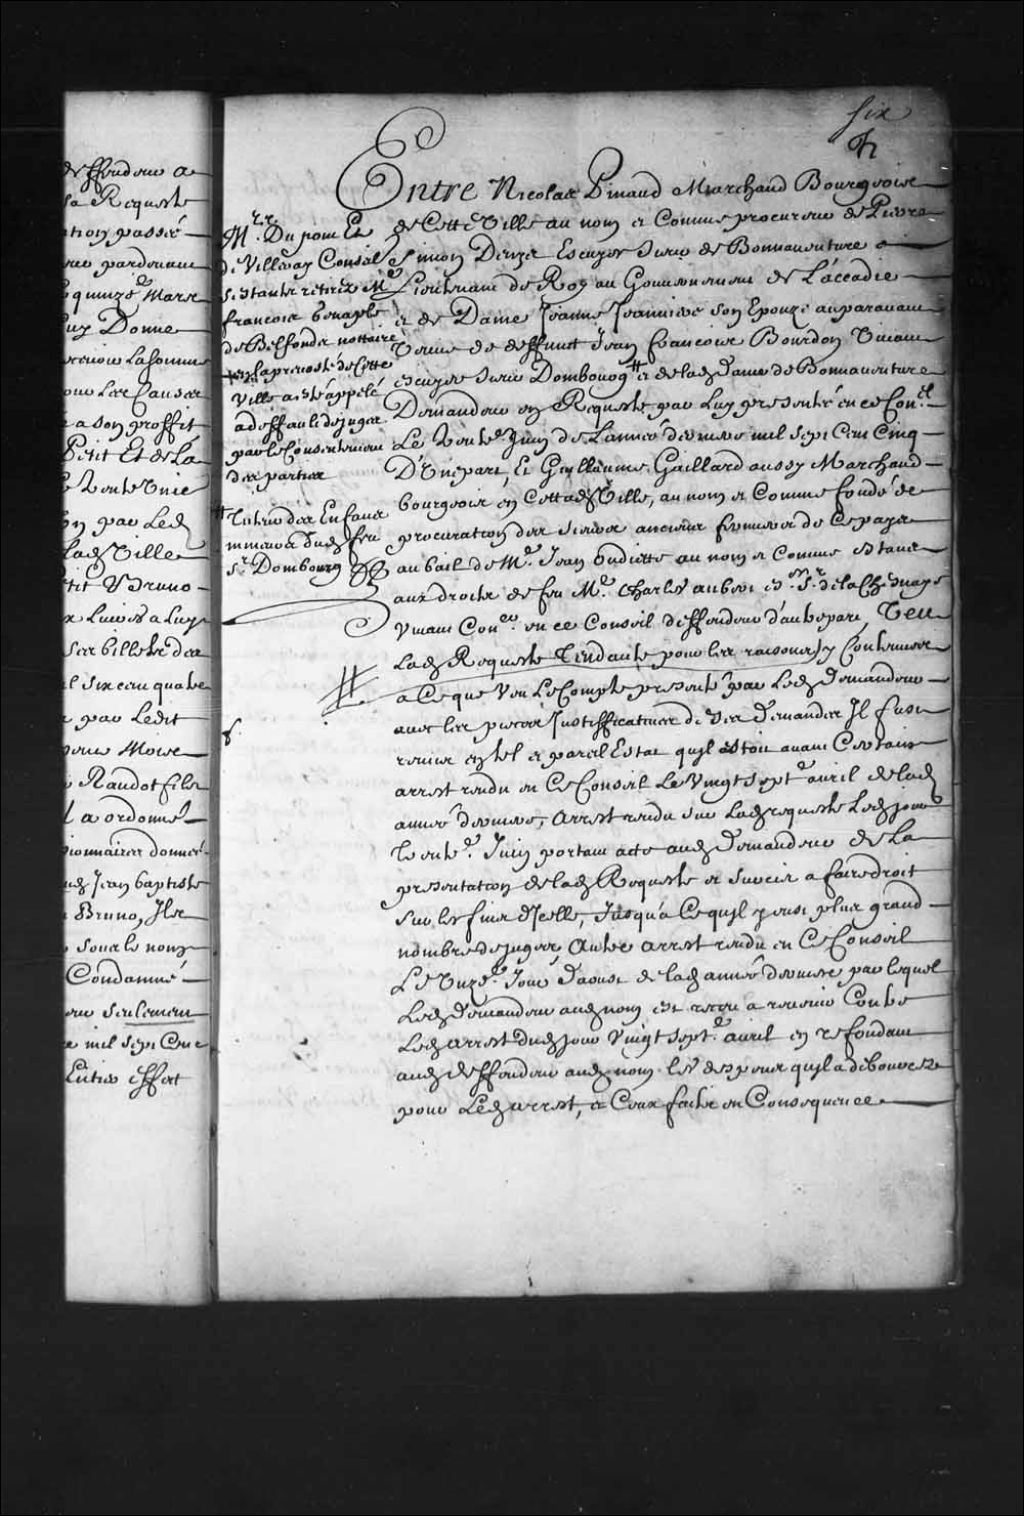 deffendeur a
sa Requeste
ation passé
pardevant
quinze Mars
luy Donne
la somme
les Causes
a son proffit
Petit Et de La
trente Unie
par Led
lad Ville
tit & Bruno
Luies a Luy
ses billets des
l six cens quatre
par Ledit
Moire
Raudot fils
l a ordonné
donné
Jean baptiste
Bruno, Ils
sous le nom
Condamné
seulement
mil sept Cent
Entier effect
six
Entre Nicolas Pinaud Marchand Bourgeois
de Cette Ville au nom et Comme procureur de Pierre
Simon Denys Escuyer Sieur de Bonnaventure
Lieutenant de Roy au Gouvernement de L'accadie
et de Dame Jeanne Jeanniere son Epouze auparavant
Veuve de deffunct Jean francois Bourdon Vivant
escuyer Sieur Dombourg # et de lad Dame de Bonnaventure
Demandeur en Requeste par Luy presenté en ce Con.el
Le trente Juin de L'année derniere mil sept Cent Cinq
D'Unepart, Et Guillaume Gaillard aussy Marchand
bourgeois en Cette d Ville, au nom et Comme fondé de
procuration des Sieurs anciens fermiers de Ce pays
au bail de M.e Jean Oudiette au nom et Comme estant
aux droits de feu M.e Charles aubert es.er S.r de la Chesnaye
Vivant Con.er en ce Conseil deffendeur d'autrepart, Veu
Lad Requeste Tendante pour les raisons y Contenues
a Ce que Veu Le Compte presenté par Led Demandeur
avec les pieces Justifficatives de ses demandes Il fust
remis en tel et pareil Estat quil estoit avant Certain
arrest rendu en Ce Conseil Le Vingt sept.e avril de lad
année derniere, Arrest rendu sur Lad requeste Led jour
trente.e Juin portant acte aud Demandeur de La
presentation de lad Requeste et surcis a faire droit
sur les fins d'Icelle, Jusqu'a Ce quil y eust plus grand
nombre de juges, Autre arrest rendu en Ce Conseil
Le Unze.e Jour d'aoust de lad année derniere par lequel
Led Demandeur aud nom est receu a revenir Contre
Led arrest dud jour Vingt sept.e avril en refondant
aud deffendeur aud nom les despens quil a debourcez
pour Led arrest, et Ceux faits en Consequence
M.rs Du pont Et
de Villeray Consei.
s'estants retirez M.e
francois Genaple
de Belfonds nottaire
en la prevosté de Cette
Ville a esté appelé
a deffault de juges
par le Consentement
des parties
# Tutrice des Enfans
mineurs dud feu
S.r Dombourg
#